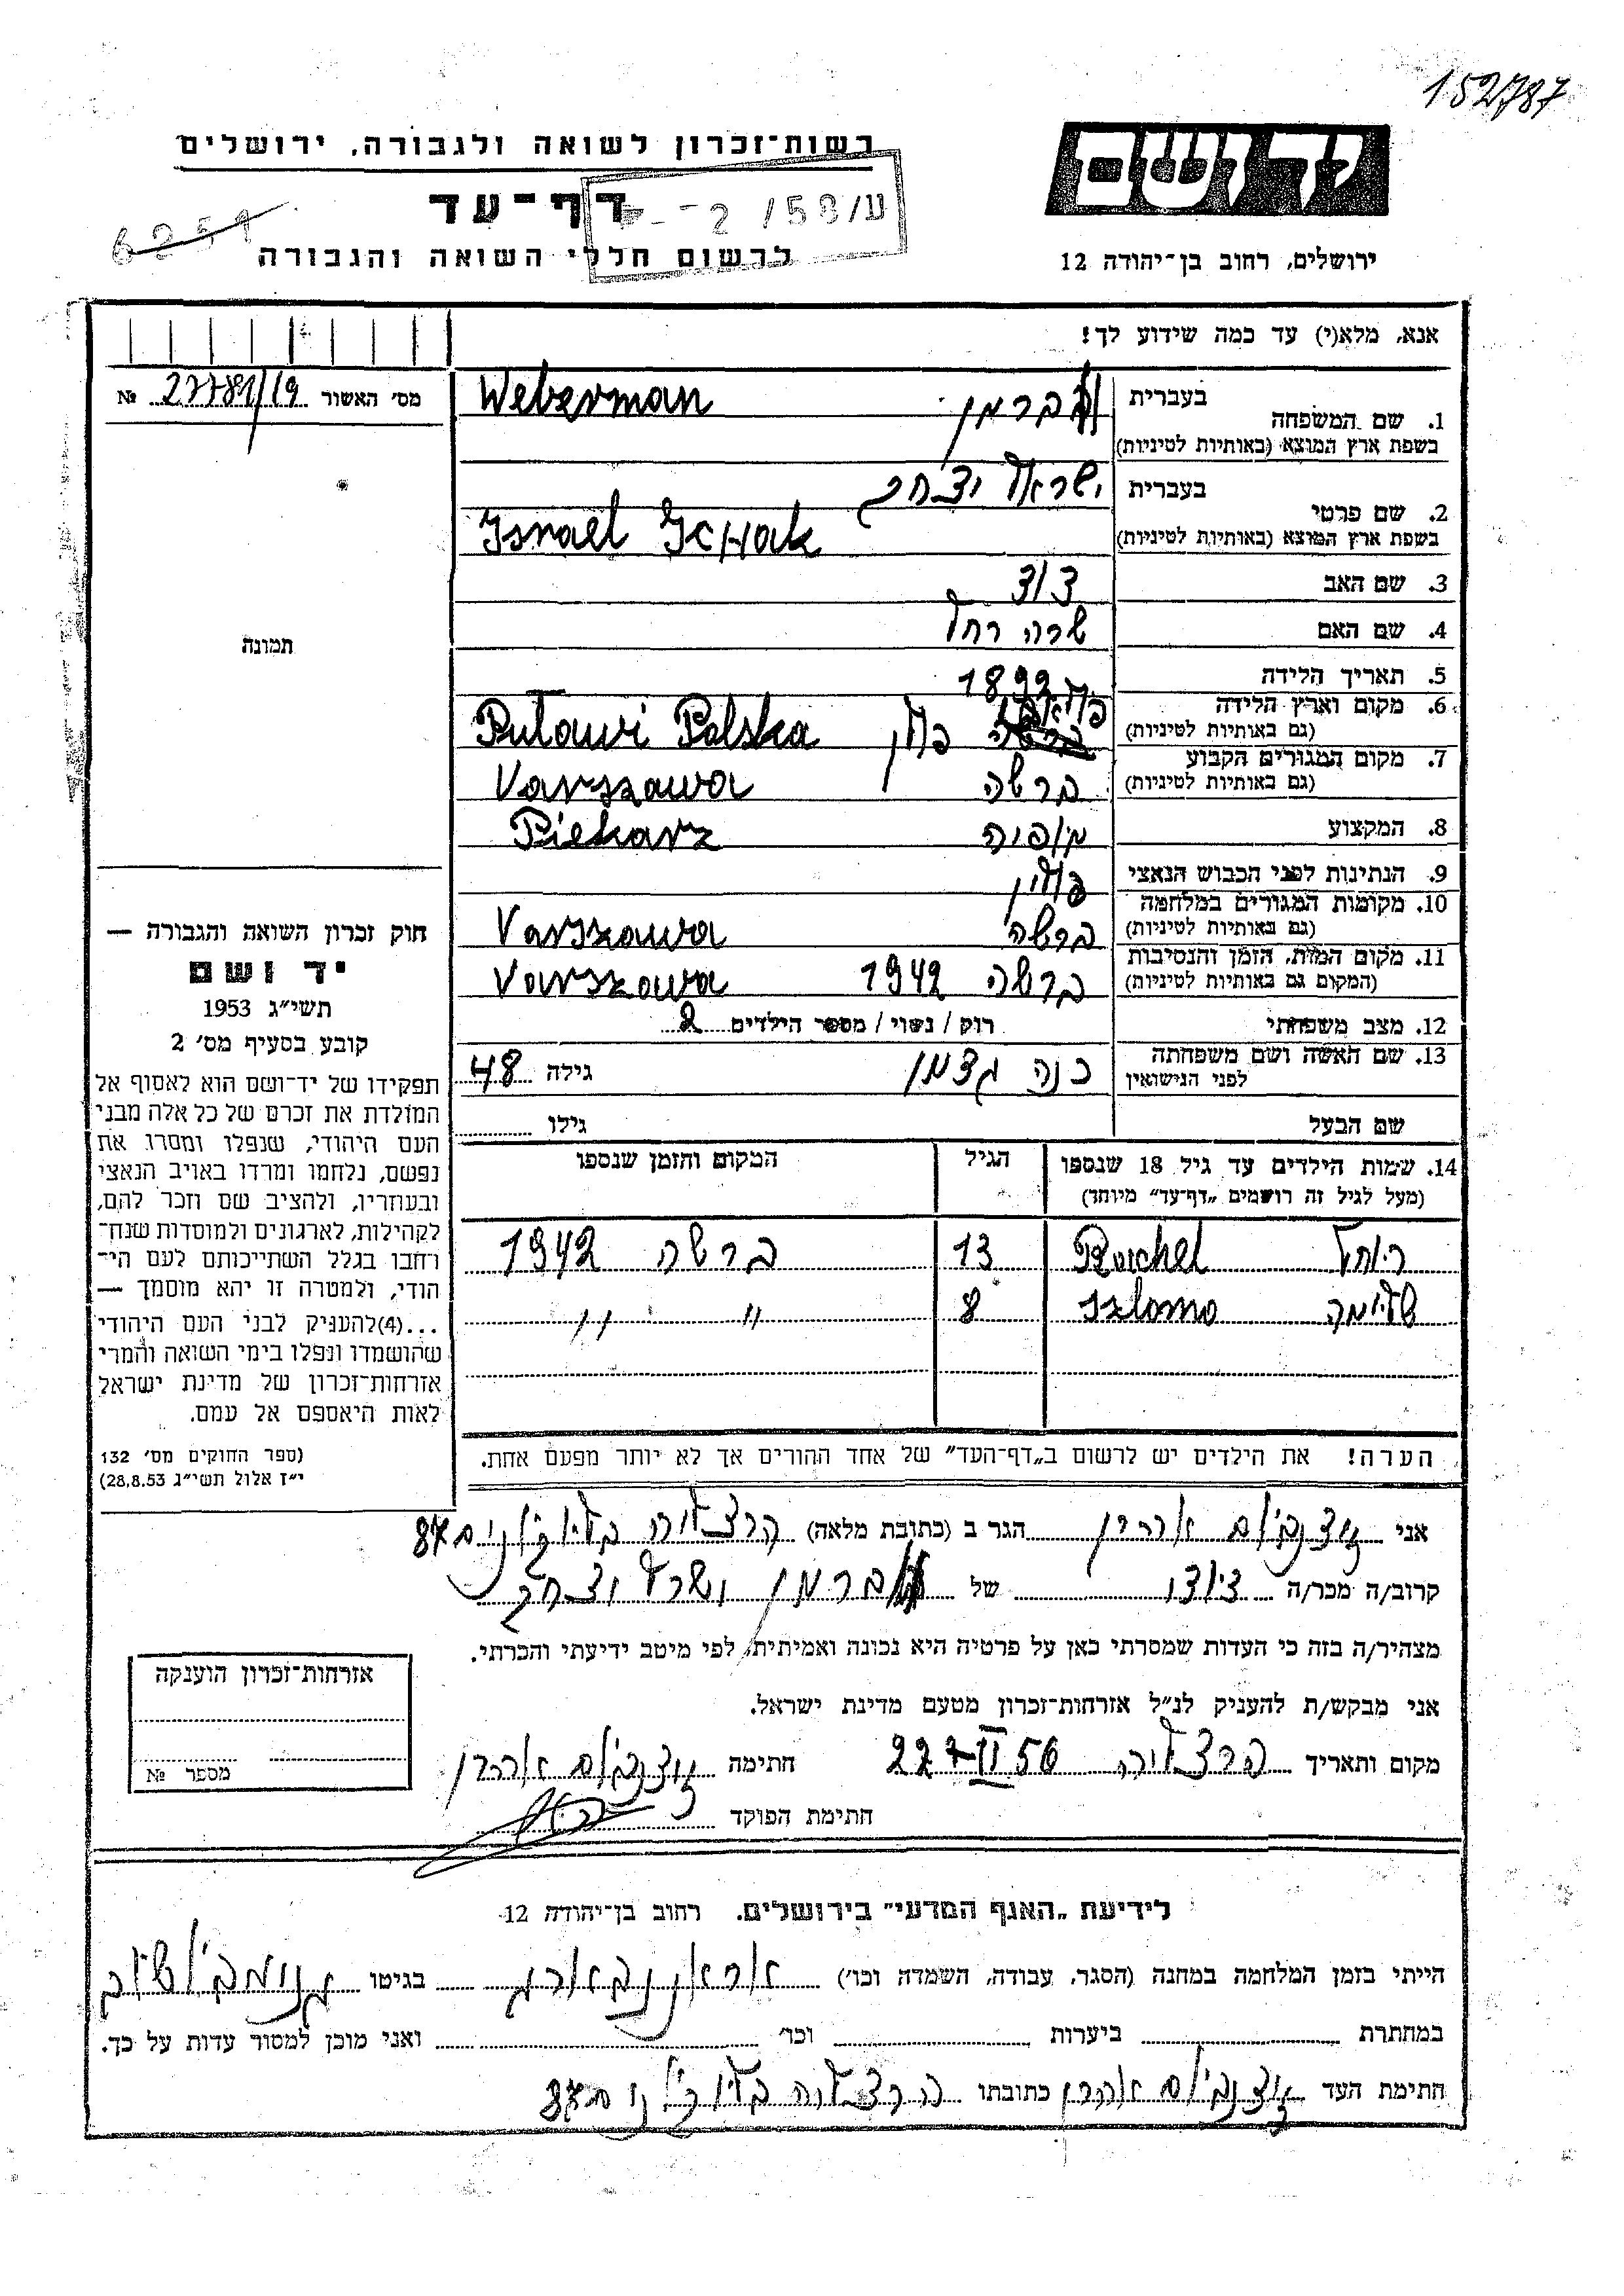 152787
יד ושם
רשות־זכרון לשואה ולגבורה, ירושלים
דף־עד
6251
ע/58/2
לרשום חללי השואה והגבורה
ירושלים, רחוב בן־יהודה 12
אנא, מלא(י) עד כמה שידוע לך!
מס׳ האשור 27781/19 №
1. שם המשפחה בעברית וברמן Weberman
בשפת ארץ המוצא (באותיות לטיניות)
2. שם פרטי בעברית ישראל יצחק
בשפת ארץ המוצא (באותיות לטיניות) Israel Ichak
3. שם האב דוד
4. שם האם שרה רחל
5. תאריך הלידה 1892
6. מקום וארץ הלידה פולין Puławi Polska
(גם באותיות לטיניות)
7. מקום המגורים הקבוע ורשה Varszawa
(גם באותיות לטיניות)
8. המקצוע Piekarz
9. הנתינות לפני הכבוש הנאצי פולין
10. מקומות המגורים במלחמה ורשה Varszawa
(גם באותיות לטיניות)
11. מקום המות, הזמן והנסיבות ורשה 1942 Varszawa
(המקום גם באותיות לטיניות)
12. מצב משפחתי רוק / נשוי / מספר הילדים 2
13. שם האשה ושם משפחתה לפני הנישואין גילה 48
שם הבעל גילו
תמונה
חוק זכרון השואה והגבורה —
יד ושם
תשי״ג 1953
קובע בסעיף מס׳ 2
תפקידו של יד־ושם הוא לאסוף אל
המולדת את זכרם של כל אלה מבני
העם היהודי, שנפלו ומסרו את
נפשם, נלחמו ומרדו באויב הנאצי
ובעוזריו, ולהציב שם וזכר להם,
לקהילות, לארגונים ולמוסדות שנח־
רחבו בגלל השתייכותם לעם הי־
הודי, ולמטרה זו יהא מוסמך —
...(4) להעניק לבני העם היהודי
שהושמדו ונפלו בימי השואה והמרי
אזרחות־זכרון של מדינת ישראל
לאות היאספם אל עמם.
(ספר החוקים מס׳ 132
י״ז אלול תשי״ג 28.8.53)
14. שמות הילדים עד גיל 18 שנספו הגיל המקום והזמן שנספו
(מעל לגיל זה רושמים „דף־עד״ מיוחד)
Rachel 13 ורשה 1942
Szlomo 8 " "
הערה! את הילדים יש לרשום ב„דף־העד״ של אחד ההורים אך לא יותר מפעם אחת.
אני אהרן הגר ב (כתובת מלאה) הרצליה 87
קרוב/ה מכר/ה דודו של וברמן ישראל יצחק
מצהיר/ה בזה כי העדות שמסרתי כאן על פרטיה היא נכונה ואמיתית, לפי מיטב ידיעתי והכרתי.
אני מבקש/ת להעניק לנ״ל אזרחות־זכרון מטעם מדינת ישראל.
מקום ותאריך הרצליה 56 חתימה אהרן
חתימת הפוקד
אזרחות־זכרון הוענקה
מספר №
לידיעת „האגף המדעי״ בירושלים. רחוב בן־יהודה 12
הייתי בזמן המלחמה במחנה (הסגר, עבודה, השמדה וכו׳) בגיטו
במחתרת ביערות וכו׳ ואני מוכן למסור עדות על כך.
חתימת העד אהרן כתובתו הרצליה 87